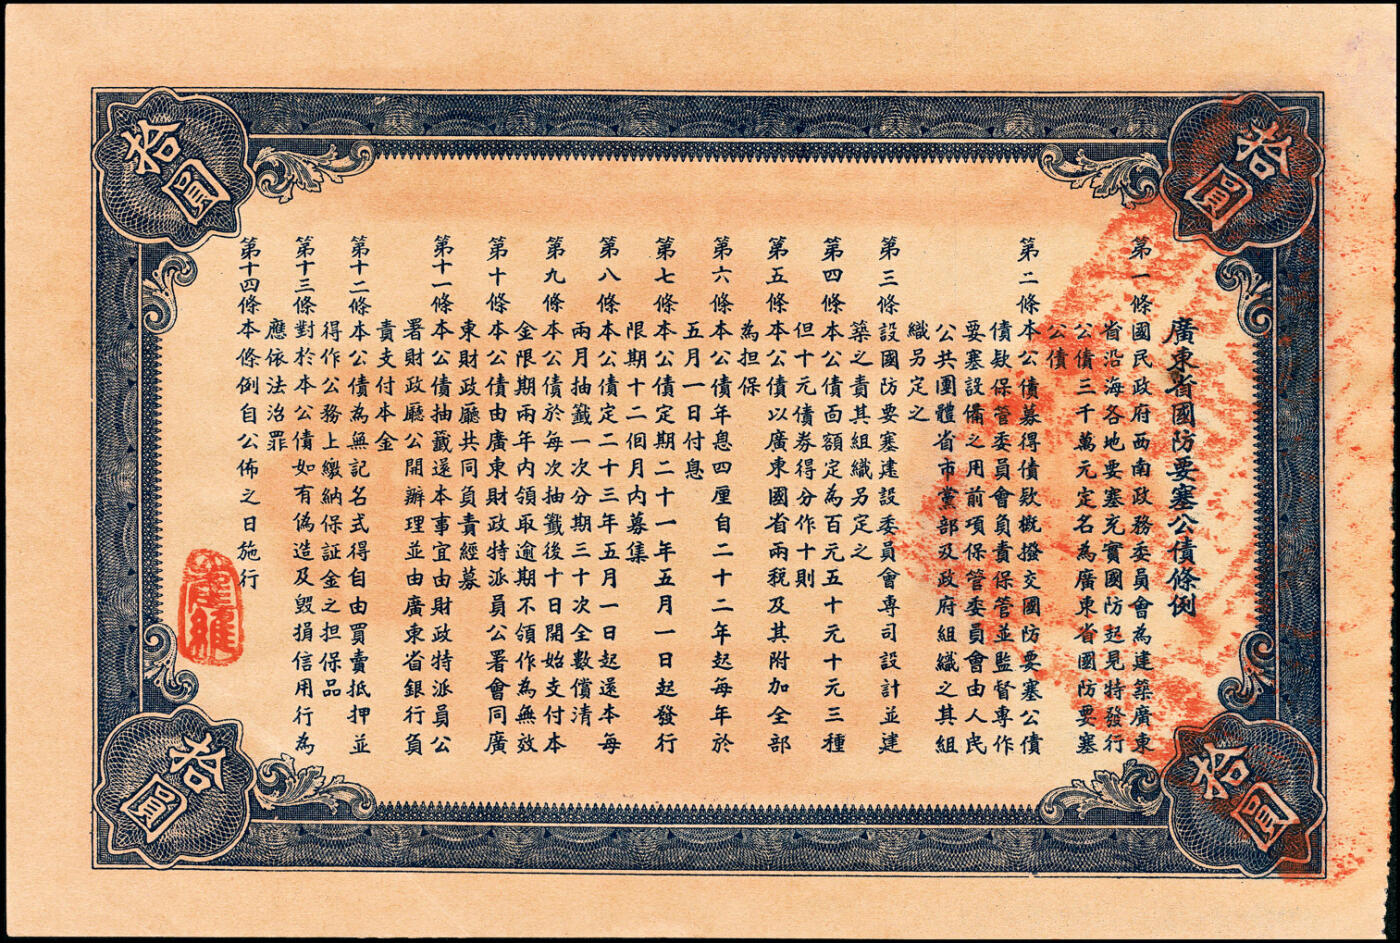 拾圓
拾圓
廣東省國防要塞公債條例
第一條國民政府西南政務委員會為建築廣東
省沿海各地要塞充實國防起見特發行
公債三千萬元定名為廣東省國防要塞
公債
第二條本公債募得債款概撥交國防要塞公債
債款保管委員會員責保管並監督專作
要塞設備之用前項保管委員會由人民
公共團體省市黨部及政府組織之其組
織另定之
第三條設國防要塞建設委員會專司設計並建
築之責其組織另定之
第四條本公債面額定為百元五十元十元三種
但十元債券得分作十則
第五條本公債以廣東國省兩稅及其附加全部
為担保
第六條本公債年息四厘自二十二年起每年於
五月一日付息
第七條本公債定期二十一年五月一日起發行
限期十二個月內募集
第八條本公債定二十三年五月一日起還本每
兩月抽籤一次分期三十次全數償清
第九條本公債於每次抽籤後十日開始支付本
金限期兩年內領取逾期不領作為無效
第十條本公債由廣東財政特派員公署會同廣
東財政廳共同負責經募
第十一條本公債抽籤還本事宜由財政特派員公
署財政廳公開辦理並由廣東省銀行負
責支付本金
第十二條本公債為無記名式得自由買賣抵押並
得作公務上繳納保証金之担保品
第十三條對於本公債如有偽造及毀損信用行為
應依法治罪
第十四條本條例自公佈之日施行
拾圓
拾圓